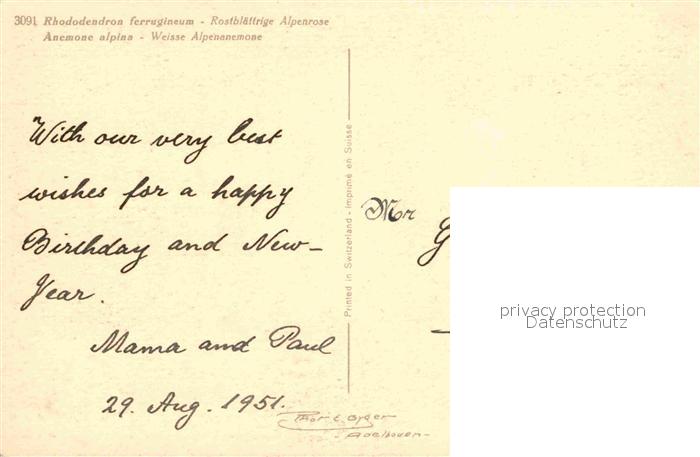 3091 Rhododendron ferrugineum - Rostblättrige Alpenrose
Anemone alpina - Weisse Alpenanemone
With our very best
wishes for a happy
Birthday and New-
Year.
Mama and Paul
29. Aug. 1951.
Printed in Switzerland - Imprimé en Suisse
Mr
G
privacy protection
Datenschutz
Adelboden